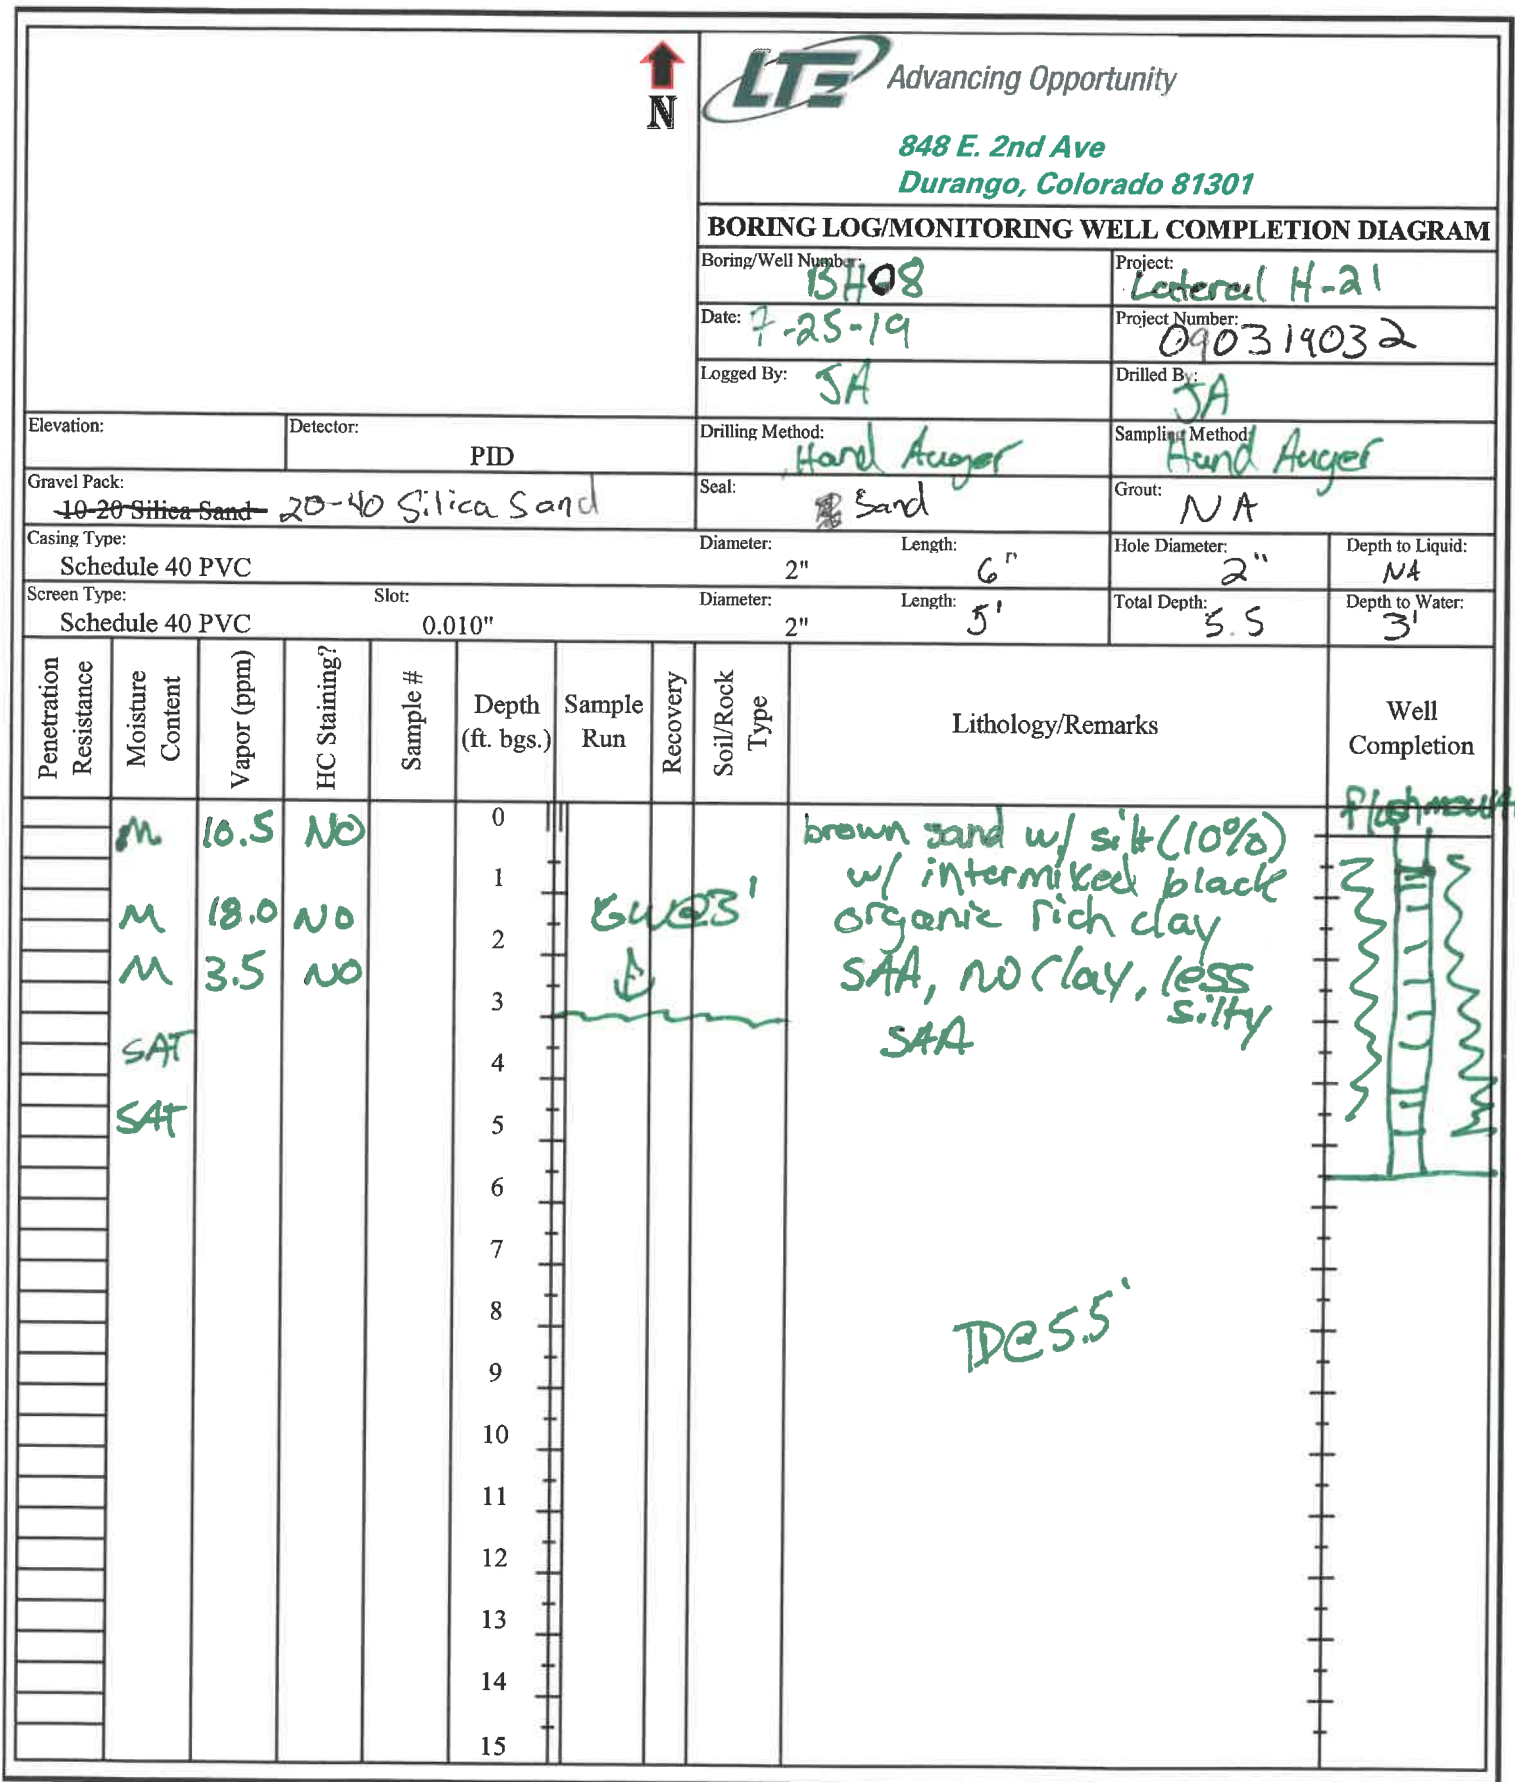 N
LTE Advancing Opportunity
848 E. 2nd Ave
Durango, Colorado 81301
BORING LOG/MONITORING WELL COMPLETION DIAGRAM
Boring/Well Number: BH08
Project: Lateral H-21
Date: 7-25-19
Project Number: 090319032
Logged By: JA
Drilled By: JA
Elevation:
Detector: PID
Drilling Method: Hand Auger
Sampling Method: Hand Auger
Gravel Pack: 10-20 Silica Sand 20-40 Silica Sand
Seal: Sand
Grout: NA
Casing Type: Schedule 40 PVC
Diameter: 2"
Length: 6"
Hole Diameter: 2"
Depth to Liquid: NA
Screen Type: Schedule 40 PVC
Slot: 0.010"
Diameter: 2"
Length: 5'
Total Depth: 5.5
Depth to Water: 3'
Penetration Resistance
Moisture Content
Vapor (ppm)
HC Staining?
Sample #
Depth (ft. bgs.)
Sample Run
Recovery
Soil/Rock Type
Lithology/Remarks
Well Completion
flushmount
0
M 10.5 NO
brown sand w/ silt (10%)
w/ intermixed black
1
M 18.0 NO
GW@3'
organic rich clay
2
M 3.5 NO
SAA, NO Clay, less
silty
3
SAT
SAA
4
SAT
5
6
7
8
TD@5.5'
9
10
11
12
13
14
15